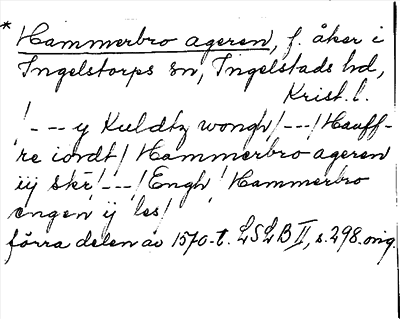 * Hammerbro ageren, f. åker i
Ingelstorps sn, Ingelstads hd,
Krist. l.
! --- y Kuldtz wongh / --- / Hauff-
re iordt / Hammerbro ageren
iij skr̄ / --- / Engh / Hammerbro
engen ij les /
förra delen av 1570-t. LSLB II, s. 298. orig.